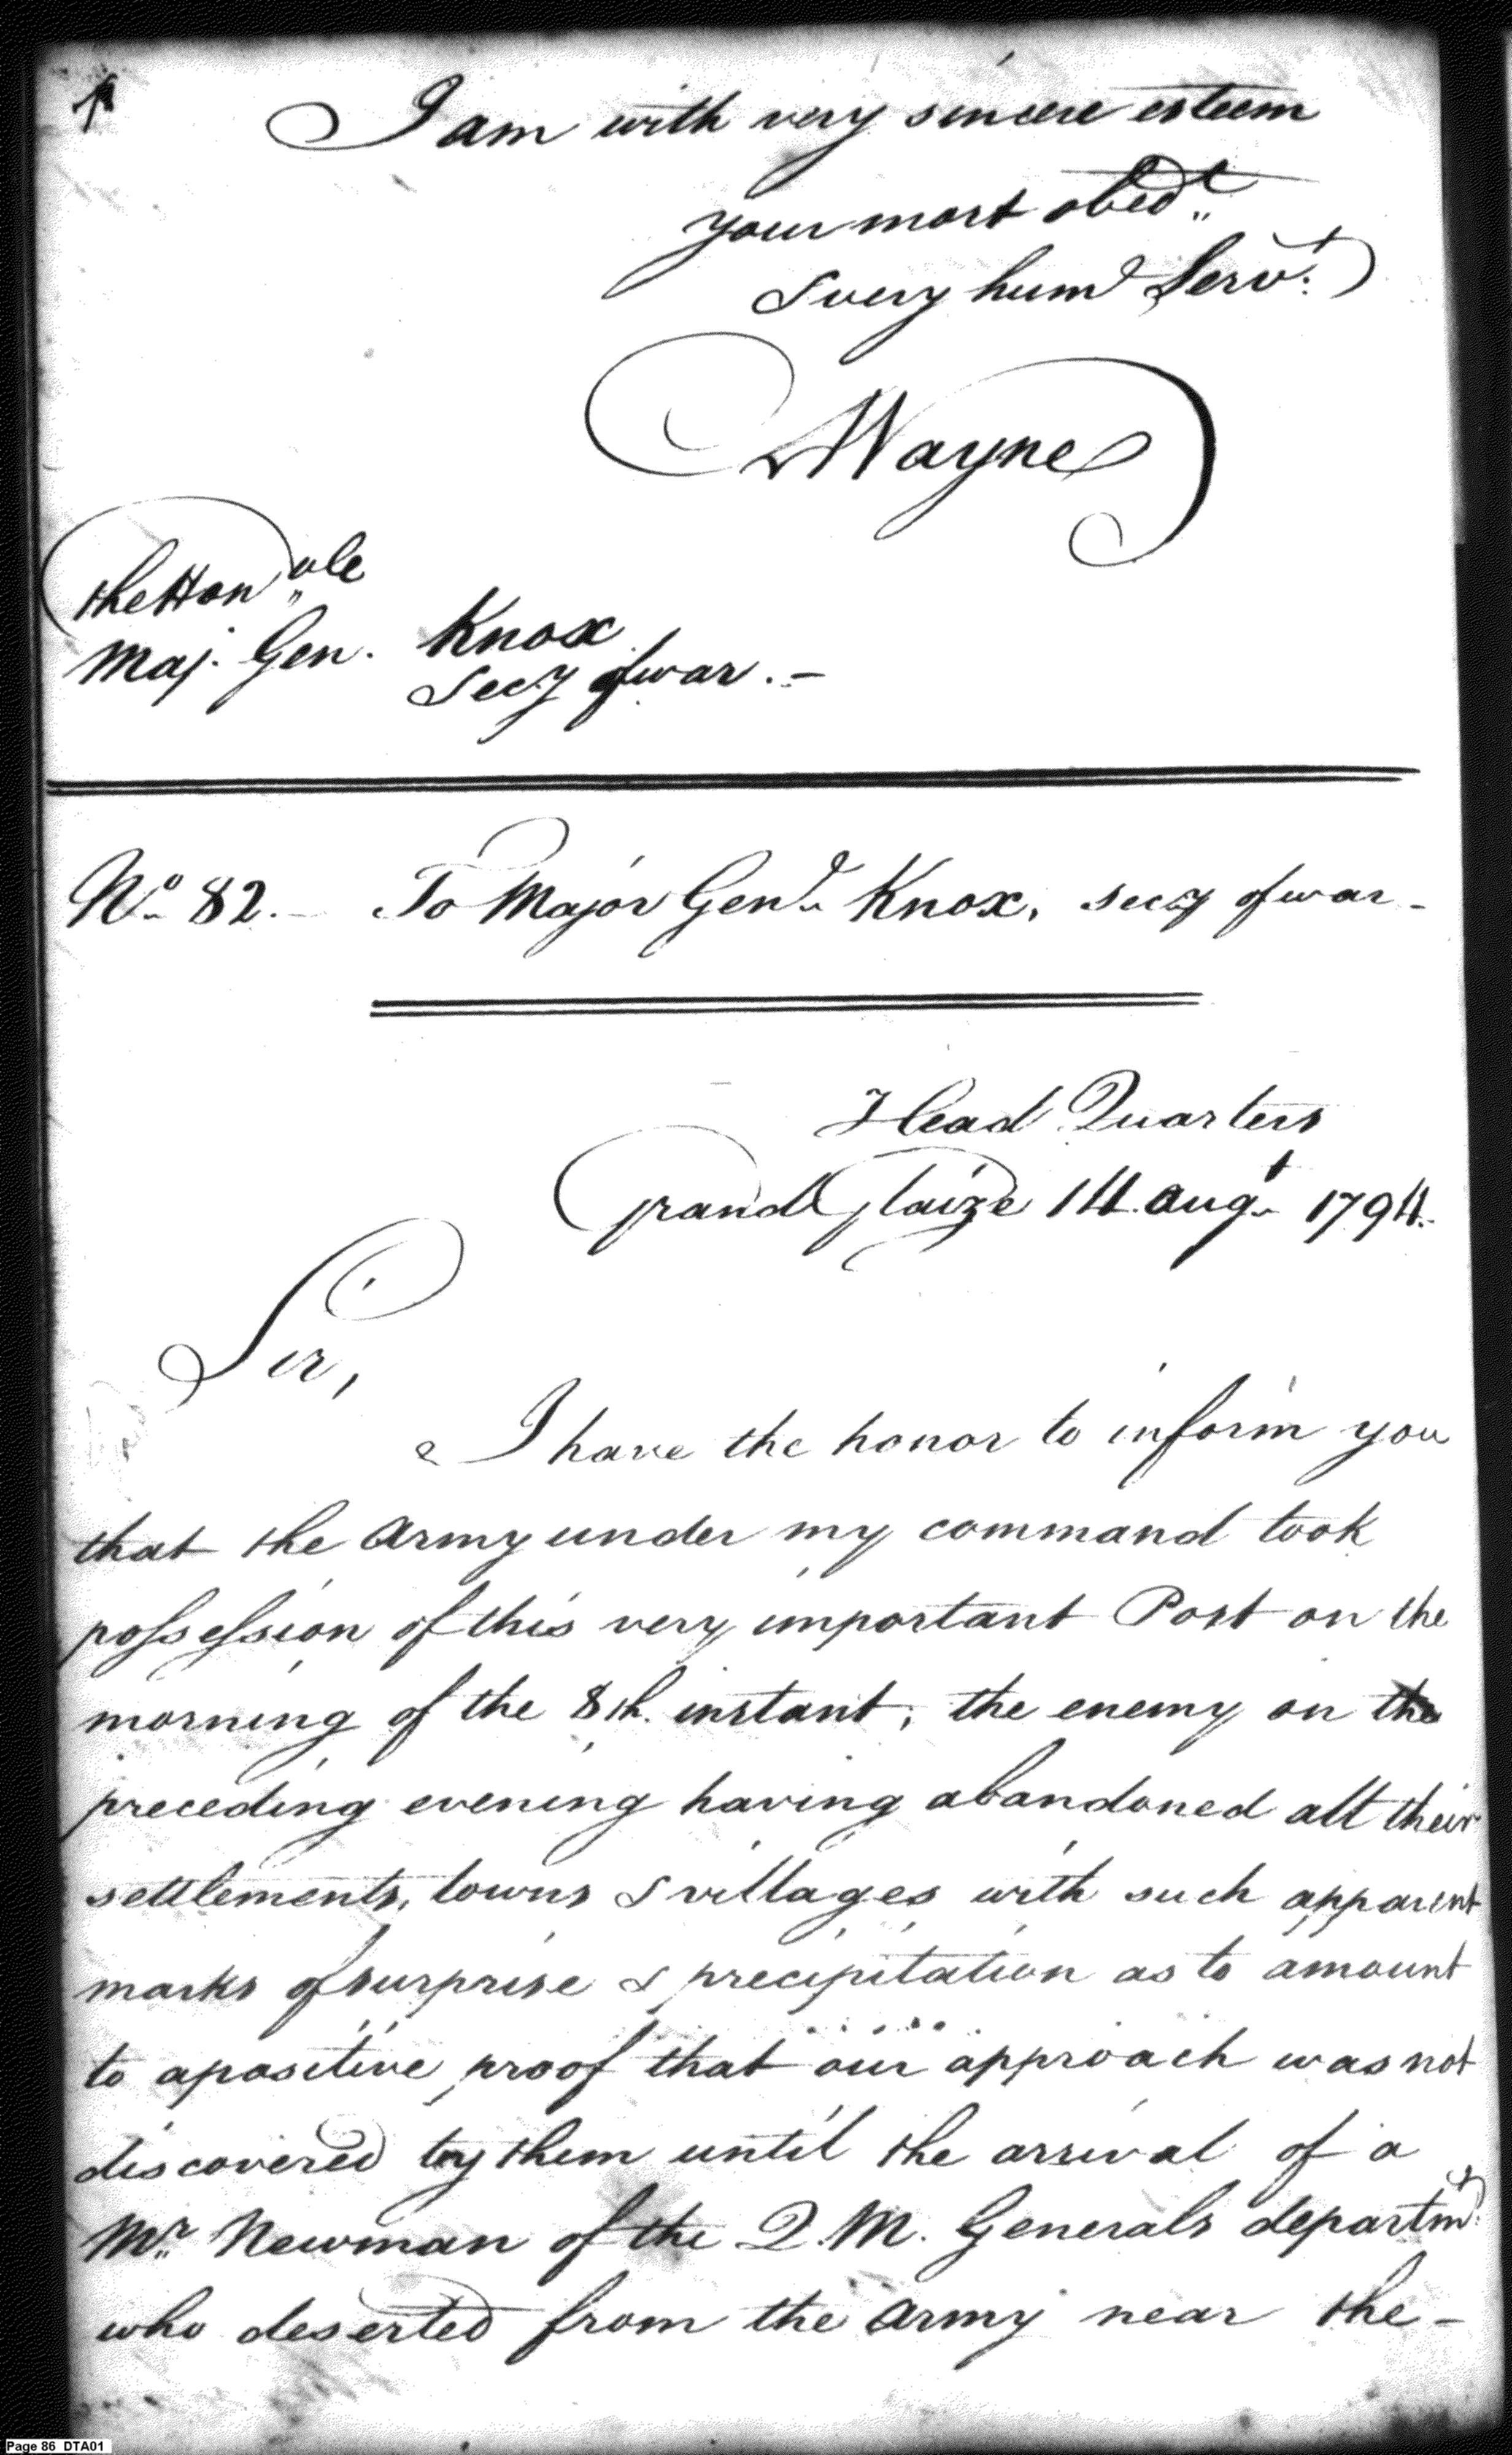 I am with very sincere esteem
your most obedt
& very huml Servt
AWayne
The Honble
Maj. Gen. Knox
Secy of war. -
No 82. - To Major Genl Knox, secy of war -
Head Quarters
Grand Glaize 14. Augt 1794.
Sir,
I have the honor to inform you
that the Army under my command took
possession of this very important Post on the
morning of the 8th. instant, the enemy on the
preceding evening having abandoned all their
settlements, towns & villages with such apparent
marks of surprise & precipitation as to amount
to a positive proof that our approach was not
discovered by them until the arrival of a
Mr Newman of the Q.M. Generals departmt
who deserted from the Army near the -
Page 86 DTA01